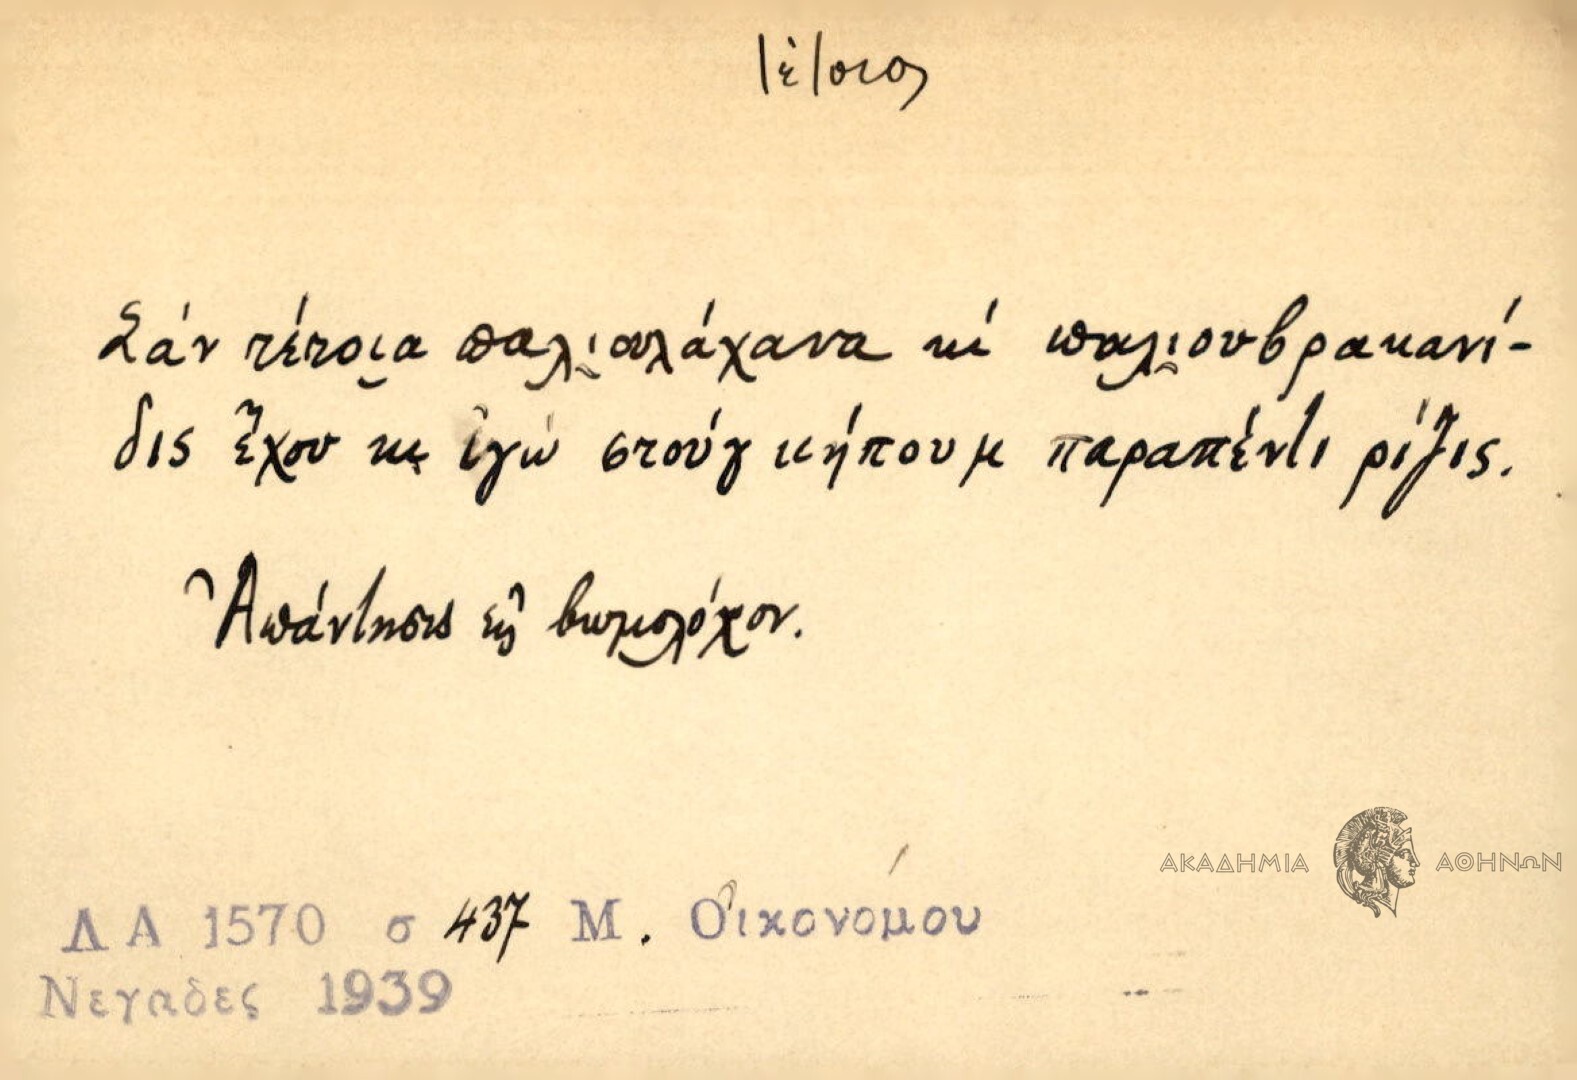 τέτοιος
Σάν τέτοια παλιουλάχανα κί παλιουβρακανί-
δις ἔχου κι ἰγώ στούγ κήπουμ παραπέντι ρίζις.
Ἀπάντησις εἰς βωμολόχον.
ΑΚΑΔΗΜΙΑ ΑΘΗΝΩΝ
Λ Α 1570 σ 437 Μ. Οἰκονόμου
Νεγαδες 1939